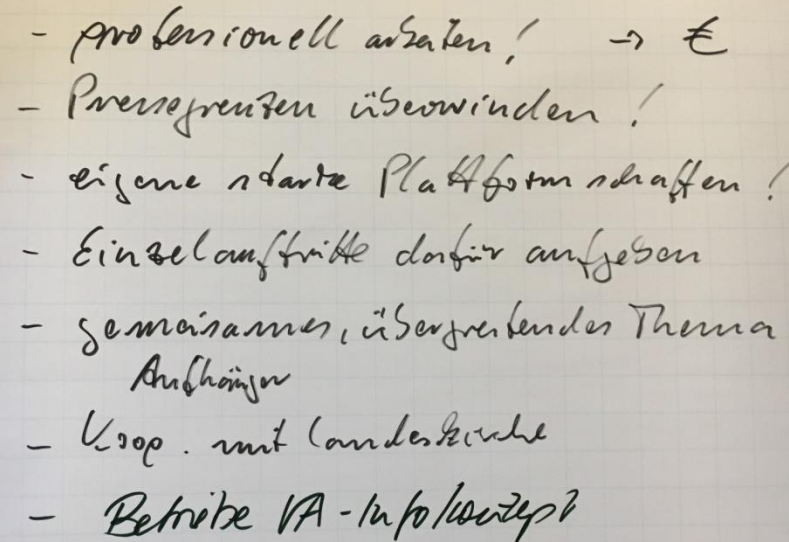 - professionell arbeiten! → €
- Pressegrenzen überwinden!
- eigene starke Plattform schaffen!
- Einzelauftritte dafür aufgeben
- gemeinsames, übergreifendes Thema
Aufhänger
- Koop. mit Landeskirche
- Betriebe VA-Infokonzept